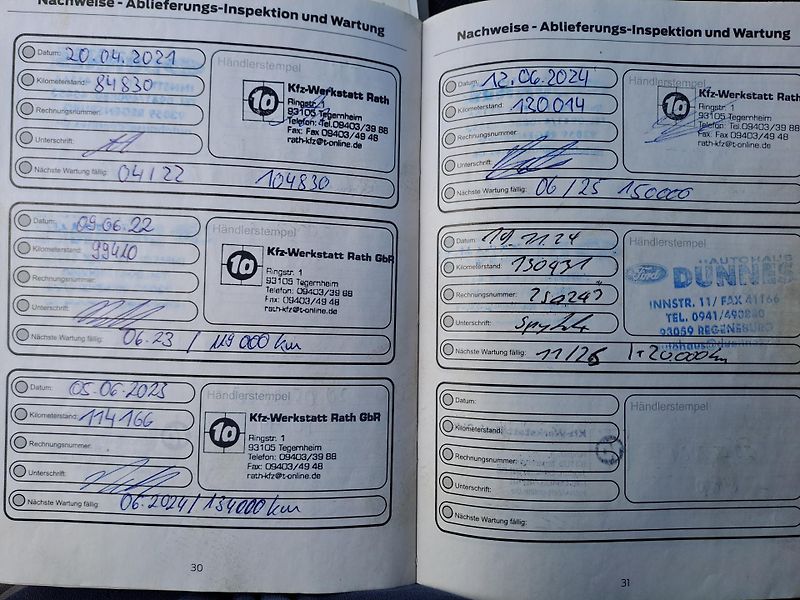 Nachweise - Ablieferungs-Inspektion und Wartung
Datum: 20.04.2021
Kilometerstand: 84830
Rechnungsnummer:
Unterschrift:
Nächste Wartung fällig: 04/22 104830
Händlerstempel
10 Kfz-Werkstatt Rath
Ringstr. 1
93105 Tegernheim
Telefon: Tel.09403/39 88
Fax: Fax 09403/49 48
rath-kfz@t-online.de
Datum: 09.06.22
Kilometerstand: 99410
Rechnungsnummer:
Unterschrift:
Nächste Wartung fällig: 06.23 / 119 000 km
Händlerstempel
10 Kfz-Werkstatt Rath GbR
Ringstr. 1
93105 Tegernheim
Telefon: 09403/39 88
Fax: 09403/49 48
rath-kfz@t-online.de
Datum: 05.06.2023
Kilometerstand: 114166
Rechnungsnummer:
Unterschrift:
Nächste Wartung fällig: 06.2024 / 134000 km
Händlerstempel
10 Kfz-Werkstatt Rath GbR
Ringstr. 1
93105 Tegernheim
Telefon: 09403/39 88
Fax: 09403/49 48
rath-kfz@t-online.de
30
Nachweise - Ablieferungs-Inspektion und Wartung
Datum: 12.06.2024
Kilometerstand: 130014
Rechnungsnummer:
Unterschrift:
Nächste Wartung fällig: 06/25 150000
Händlerstempel
10 Kfz-Werkstatt Rath
Ringstr. 1
93105 Tegernheim
Telefon: Tel.09403/39 88
Fax: Fax 09403/49 48
rath-kfz@t-online.de
Datum: 19.11.24
Kilometerstand: 130931
Rechnungsnummer:
Unterschrift:
Nächste Wartung fällig: 11/26 1+20.000km
Händlerstempel
Ford AUTOHAUS
DÜNNES
INNSTR. 11/ FAX 41166
TEL. 0941/490880
93059 REGENSBURG
Datum:
Kilometerstand:
Rechnungsnummer:
Unterschrift:
Nächste Wartung fällig:
Händlerstempel
31